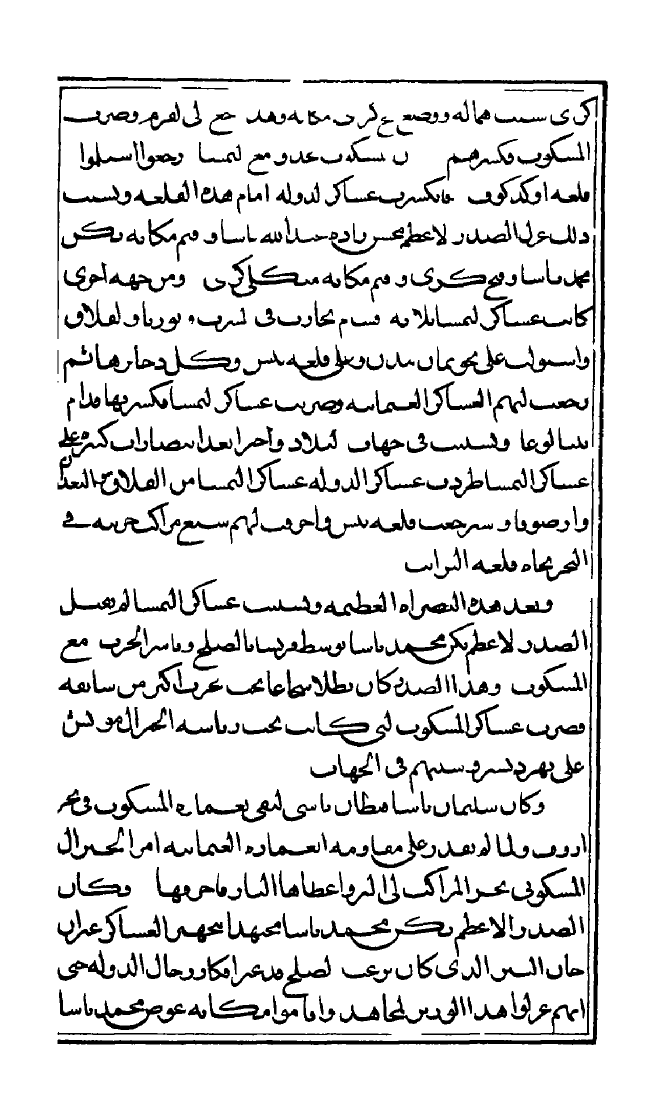 كرى سبب هماله ووضع كرى مكانه وهذ رجع الى لقرم وضرب
المسكوب فكسرهم مسكوب عدو مع لنمسا رجعوا استولوا
قلعة اوكدكوف فانكسرت عساكر لدوله امام هذه القلعه وبسبب
ذلك عزل الصدر لاعظم محسن زاده عبد الله باشا وقيم مكانه يكن
محمد باشا وفتح كرى وقيم مكانه منكلى كرى ومن جهه اخرى
كانت عساكر لنمسا ثلاثه قسام تحارب فى لصرب وبوزنا ولفلاق
واستولت على وعلى قلعه نيس وكل دخائرها ثم
رجعت ليهم العساكر العثمانيه وضربت عساكر لنمسا فكسرتها قدام
بنيالوغا وتشتتت فى جهات لبلاد واخيرا بعد انتصارات كثيره على
عساكر النمسا طردت عساكر الدوله عساكر النمسا من الفلاق
وارصوفا و سترجعت قلعه نيس واحرقت لهم سبع مراكب حربيه فى
البحر تجاه قلعه
وبعد هذه النصراه العظيمه وتشتت عساكر النمسا لم يقبل
الصدر لاعظم يكن محمد باشا توسط فرنسا بالصلح وباشر الحرب مع
المسكوب وهذا الصدر كان بطلا شجاعا يحب لحرب اكثر من سابقه
فضرب عساكر المسكوب لتى كانت تحت رياسه الجنرال مونش
على نهر دنيستر وشتتهم فى الجهات
وكان سليمان باشا قبطان باشى لتقى بعماره المسكوب فى بحر
ازوف ولما لم يقدر على مقاومه العماره العثمانيه امر الجنرال
المسكوبى بجر المراكب الى البر واعطاها النار فاحرقها وكان
الصدر الاعظم يكن محمد باشا مجتهدا بتجهيز العساكر غير ان
خان الذى كان يرغب لصلح قد غير افكار رجال الدوله حتى
انهم عزلوا هذا الوزير لمجاهد واقاموا مكانه عوض محمد باشا